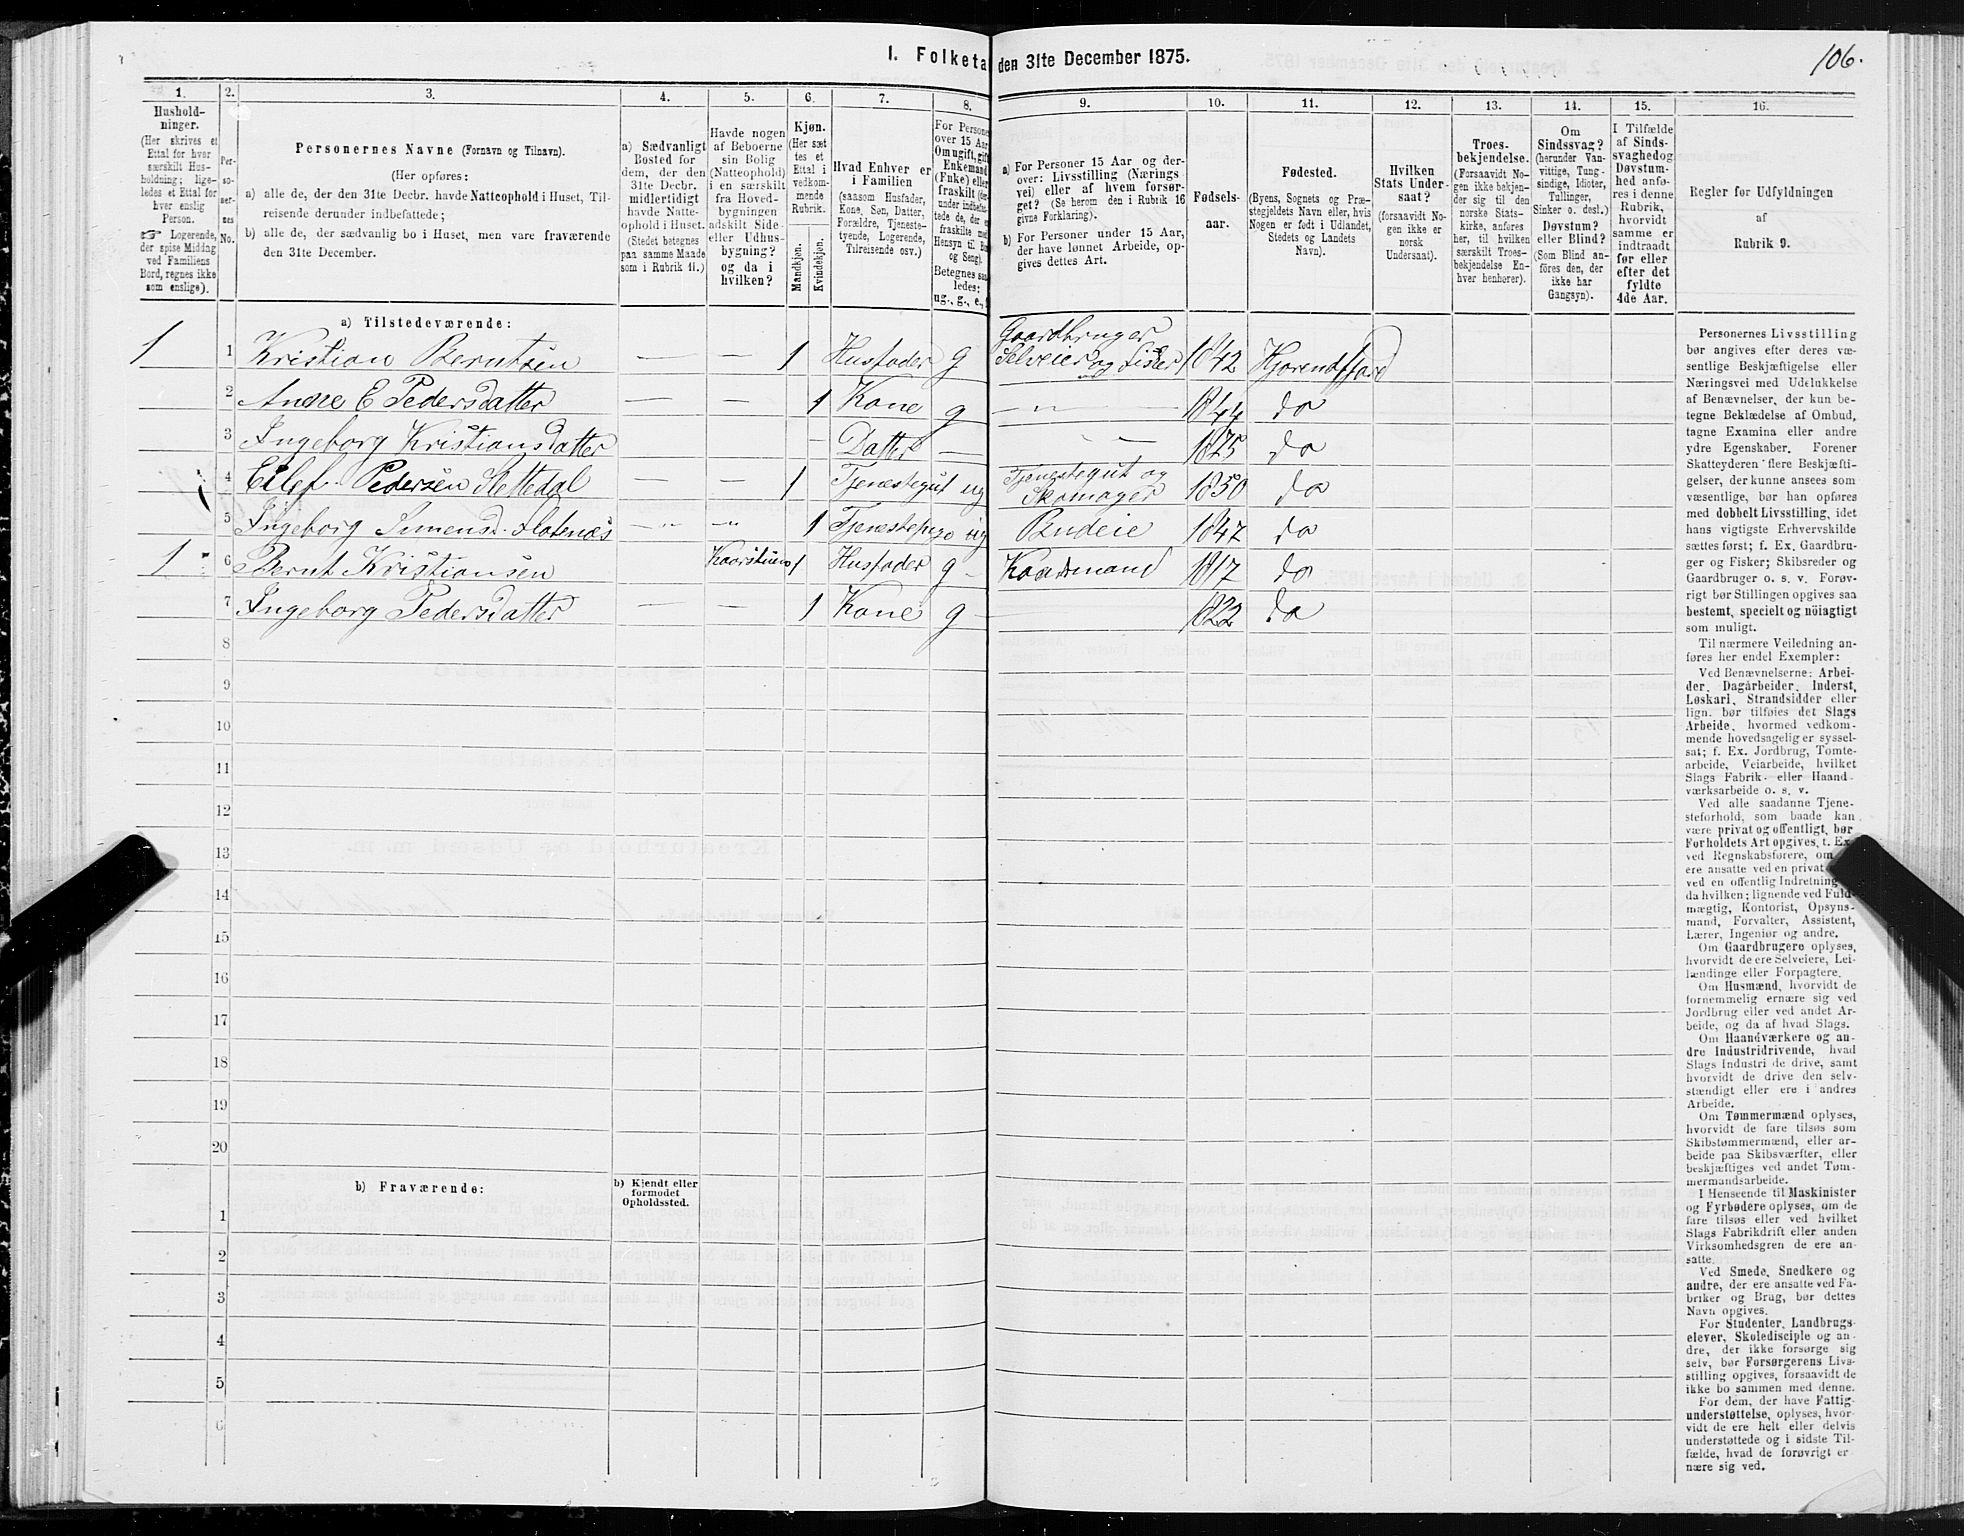 I. Folketa den 31te December 1875.
106.
1. 2. 3. 4. 5. 6. 7. 8. 9. 10. 11. 12. 13. 14. 15. 16.
Hushold-
ninger.
(Her skrives et
Ettal for hver
særskilt Hus-
holdning; lige-
ledes et Ettal for
hver enslig
Person.
☞ Logerende,
der spise Middag
ved Familiens
Bord, regnes ikke
som enslige).
Per-
so-
ner-
nes
No.
Personernes Navne (Fornavn og Tilnavn).
(Her opføres:
a) alle de, der den 31te Decbr. havde Natteophold i Huset, Til-
reisende derunder indbefattede;
b) alle de, der sædvanlig bo i Huset, men vare fraværende
den 31te December.
a) Sædvanligt
Bosted for
dem, der den
31te Decbr.
midlertidigt
havde Natte-
ophold i Huset.
(Stedet betegnes
paa samme Maade
som i Rubrik 11.)
Havde nogen
af Beboerne
sin Bolig
(Natteophold)
i en særskilt
fra Hoved-
bygningen
adskilt Side-
eller Udhus-
bygning?
og da i
hvilken?
Kjøn.
(Her sæt
tes et
Ettal i
vedkom-
mende
Rubrik.
Mandkjøn.
Kvindekjøn.
Hvad Enhver er
i Familien
(saasom Husfader,
Kone, Søn, Datter,
Forældre, Tjeneste-
tyende, Logerende,
Tilreisende osv.)
For Persone
over 15 Aar
Om ugift, gift
Enkemand
(Enke) eller
fraskilt (her-
under indbefat-
tede de, der e
fraskilte med
Hensyn til Bo
og Seng).
Betegnes saa
ledes:
ug., g., e.,
a) For Personer 15 Aar og der-
over: Livsstilling (Nærings
vei) eller af hvem forsør-
get? (Se herom den i Rubrik 16
givne Forklaring).
b) For Personer under 15 Aar,
der have lønnet Arbeide, op-
gives dettes Art.
Fødsels-
aar.
Fødested.
(Byens, Sognets og Præ-
stegjeldets Navn eller, hvis
Nogen er født i Udlandet,
Stedets og Landets
Navn).
Hvilken
Stats Under-
saat?
(forsaavidt No-
gen ikke er
norsk
Undersaat).
Troes-
bekjendelse.
(Forsaavidt No-
gen ikke bekjen-
der sig til den
norske Stats-
kirke, anføres
her, til hvilken
særskilt Troes-
bekjendelse En-
hver henhører).
Om
Sindssvag?
(herunder Van-
vittige, Tung-
sindige, Idioter,
Tullinger,
Sinker o. desl.)
Døvstum?
eller Blind?
(Som Blind an-
føres den, der
ikke har
Gangsyn).
I Tilfælde
af Sinds-
svaghed og
Døvstum-
hed anfø-
res i denne
Rubrik,
hvorvidt
samme er
indtraadt
før eller
efter det
fyldte
4de Aar.
Regler før Udfyldningen
af
Rubrik 9.
a) Tilstedeværende:
1 1 Kristian Berntsen — — 1 Husfader g Gaardbruger Selveier og Fisker 1842 Hjorendfjord
2 Anne E Pedersdatter — — 1 Kone g — " — 1844 do
3 Ingeborg Kristiansdatter — Datter — " — 1875 do
4 Eilef Pedersen Slettedal — — 1 Tjenestegut ug Tjenestegut og Skomager 1850 do
5 Ingeborg Simensd. — " — " 1 ug Budeie 1847 do
1 6 Bernt Kristiansen 1 Husfader g Kaardmand 1817 do
7 Ingeborg Pedersdatter — — 1 Kone g — 1822 do
8
9
10
11
12
13
14
15
16
17
18
19
20
b) Fraværende:
b) Kjendt eller
formodet
Opholdssted.
1
2
3
4
5
6
Personernes Livsstilling
bør angives efter deres væ-
sentlige Beskjæftigelse eller
Næringsvei med Udelukkelse
af Benævnelser, der kun be-
tegne Beklædelse af Ombud,
tagne Examina eller andre
ydre Egenskaber. Forener
Skatteyderen flere Beskjæfti-
gelser, der kunne ansees som
væsentlige, bør han opføres
med dobbelt Livsstilling, idet
hans vigtigste Erhvervskilde
sættes først; f. Ex. Gaardbru-
ger og Fisker; Skibsreder og
Gaardbruger o. s. v. Forøv-
rigt bør Stillingen opgives saa
bestemt, specielt og nöiagtigt
som muligt.
Til nærmere Veiledning an-
føres her endel Exempler:
Ved Benævnelserne: Arbei-
der, Dagarbeider, Inderst,
Løskarl, Strandsidder eller
lign. bør tilføies det Slags
Arbeide, hvormed vedkom-
mende hovedsagelig er syssel-
sat; f. Ex. Jordbrug, Tomte-
arbeide, Veiarbeide, hvilket
Slags Fabrik- eller Haand-
værksarbeide o. s. v.
Ved alle saadanne Tjene-
steforhold, som baade kan
være privat og offentligt, bør
Forholdets Art opgives, t. Ex.
ved Regnskabsførere, om
ere ansatte ved en privat
ved en offentlig Indretning
da hvilken; lignende ved Fuld-
mægtig, Kontorist, Opsyns-
mand, Forvalter, Assistent,
Lærer, Ingeniør og andre.
Om Gaardbrugere oplyses,
hvorvidt de ere Selveiere, Lei-
lændinge eller Forpagtere.
Om Husmænd, hvorvidt de
fornemmelig ernære sig ved
Jordbrug eller ved andet Ar-
beide, og da af hvad Slags.
Om Haandværkere og an-
dre Industridrivende, hvad
Slags Industri de drive, samt
hvorvidt de drive den selv-
stændigt eller ere i andres
Arbeide.
Om Tømmermænd oplyses,
hvorvidt de fare tilsøs som
Skibstømmermænd, eller ar-
beide paa Skibsværfter, eller
beskjæftiges ved andet Tøm-
mermandsarbeide.
I Henseende til Maskinister
og Fyrbødere oplyses, om de
fare tilsøs eller ved hvilket
Slags Fabrikdrift eller anden
Virksomhedsgren de ere an-
satte.
Ved Smede, Snedkere og
andre, der ere ansatte ved Fa-
briker og Brug, bør dettes
Navn opgives.
For Studenter, Landbrugs-
elever, Skoledisciple og an-
dre, der ikke forsørge sig
selv, bør Forsørgerens Livs-
stilling opgives, forsaavidt de
ikke bo sammen med denne.
For dem, der have Fattig-
understøttelse, oplyses, hvor-
vidt de ere helt eller delvis
understøttede og i sidste Til-
fælde, hvad de forøvrigt er-
nære sig ved.